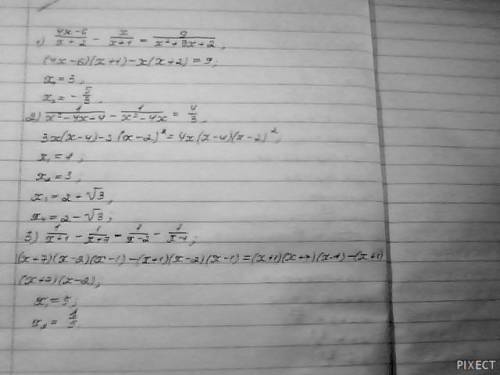 1) \frac{4x-6}{x+2} - \frac{x}{x+1} = \frac{9}{x²+3x+2};
(4x-6)(x+1)-x(x+2)=9;
x₁=3;
x₂=-\frac{5}{3}.
2) \frac{1}{x²-4x-4} - \frac{1}{x²-4x} = \frac{4}{3};
3x(x-4)-3(x-2)²=4x(x-4)(x-2)²;
x₁=1;
x₂=3;
x₃=2-√3,
x₄=2-√3;
3) \frac{1}{x+1} - \frac{1}{x+7} = \frac{1}{x-2} - \frac{1}{x-1};
(x+7)(x-2)(x-1)-(x+1)(x-2)(x-1)=(x+1)(x+7)(x-1)-(x+1)
(x+7)(x-2);
x₁=5;
x₂=
PIXECT